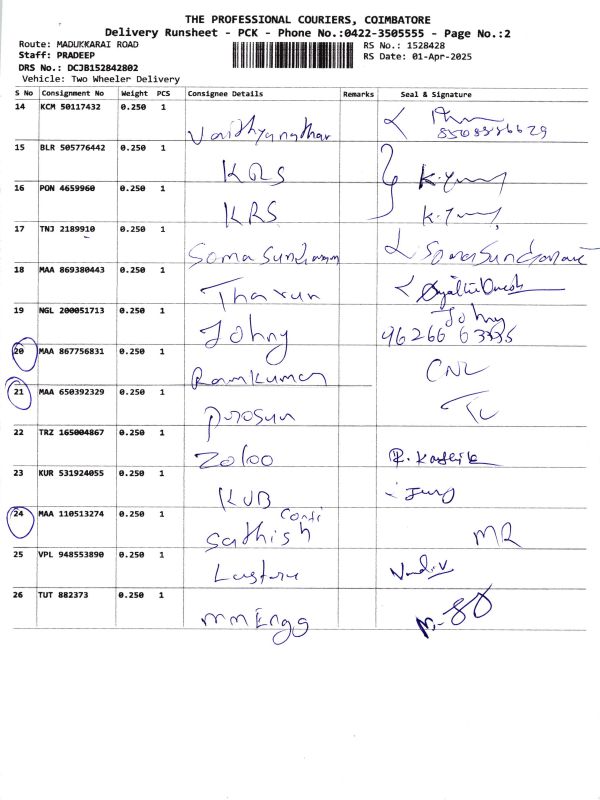 THE PROFESSIONAL COURIERS, COIMBATORE
Delivery Runsheet - PCK - Phone No.:0422-3505555 - Page No.:2
Route: MADUKKARAI ROAD
RS No.: 1528428
Staff: PRADEEP
RS Date: 01-Apr-2025
DRS No.: DCJB152842802
Vehicle: Two Wheeler Delivery
S No Consignment No Weight PCS Consignee Details Remarks Seal & Signature
14 KCM 50117432 0.250 1
Vaidhyanathan
15 BLR 505776442 0.250 1
KRS
16 PON 4659960 0.250 1
KRS
17 TNJ 2189910 0.250 1
Soma Sundaram
18 MAA 869380443 0.250 1
Tharun
19 NGL 200051713 0.250 1 Johny
Johny 96266 63335
20 MAA 867756831 0.250 1
Ramkumar CNL
21 MAA 650392329 0.250 1
22 TRZ 165004867 0.250 1
Zoloo R. Karthik
23 KUR 531924055 0.250 1
KUB
24 MAA 110513274 0.250 1
Sathish MR
25 VPL 948553890 0.250 1
26 TUT 882373 0.250 1
mm Engg